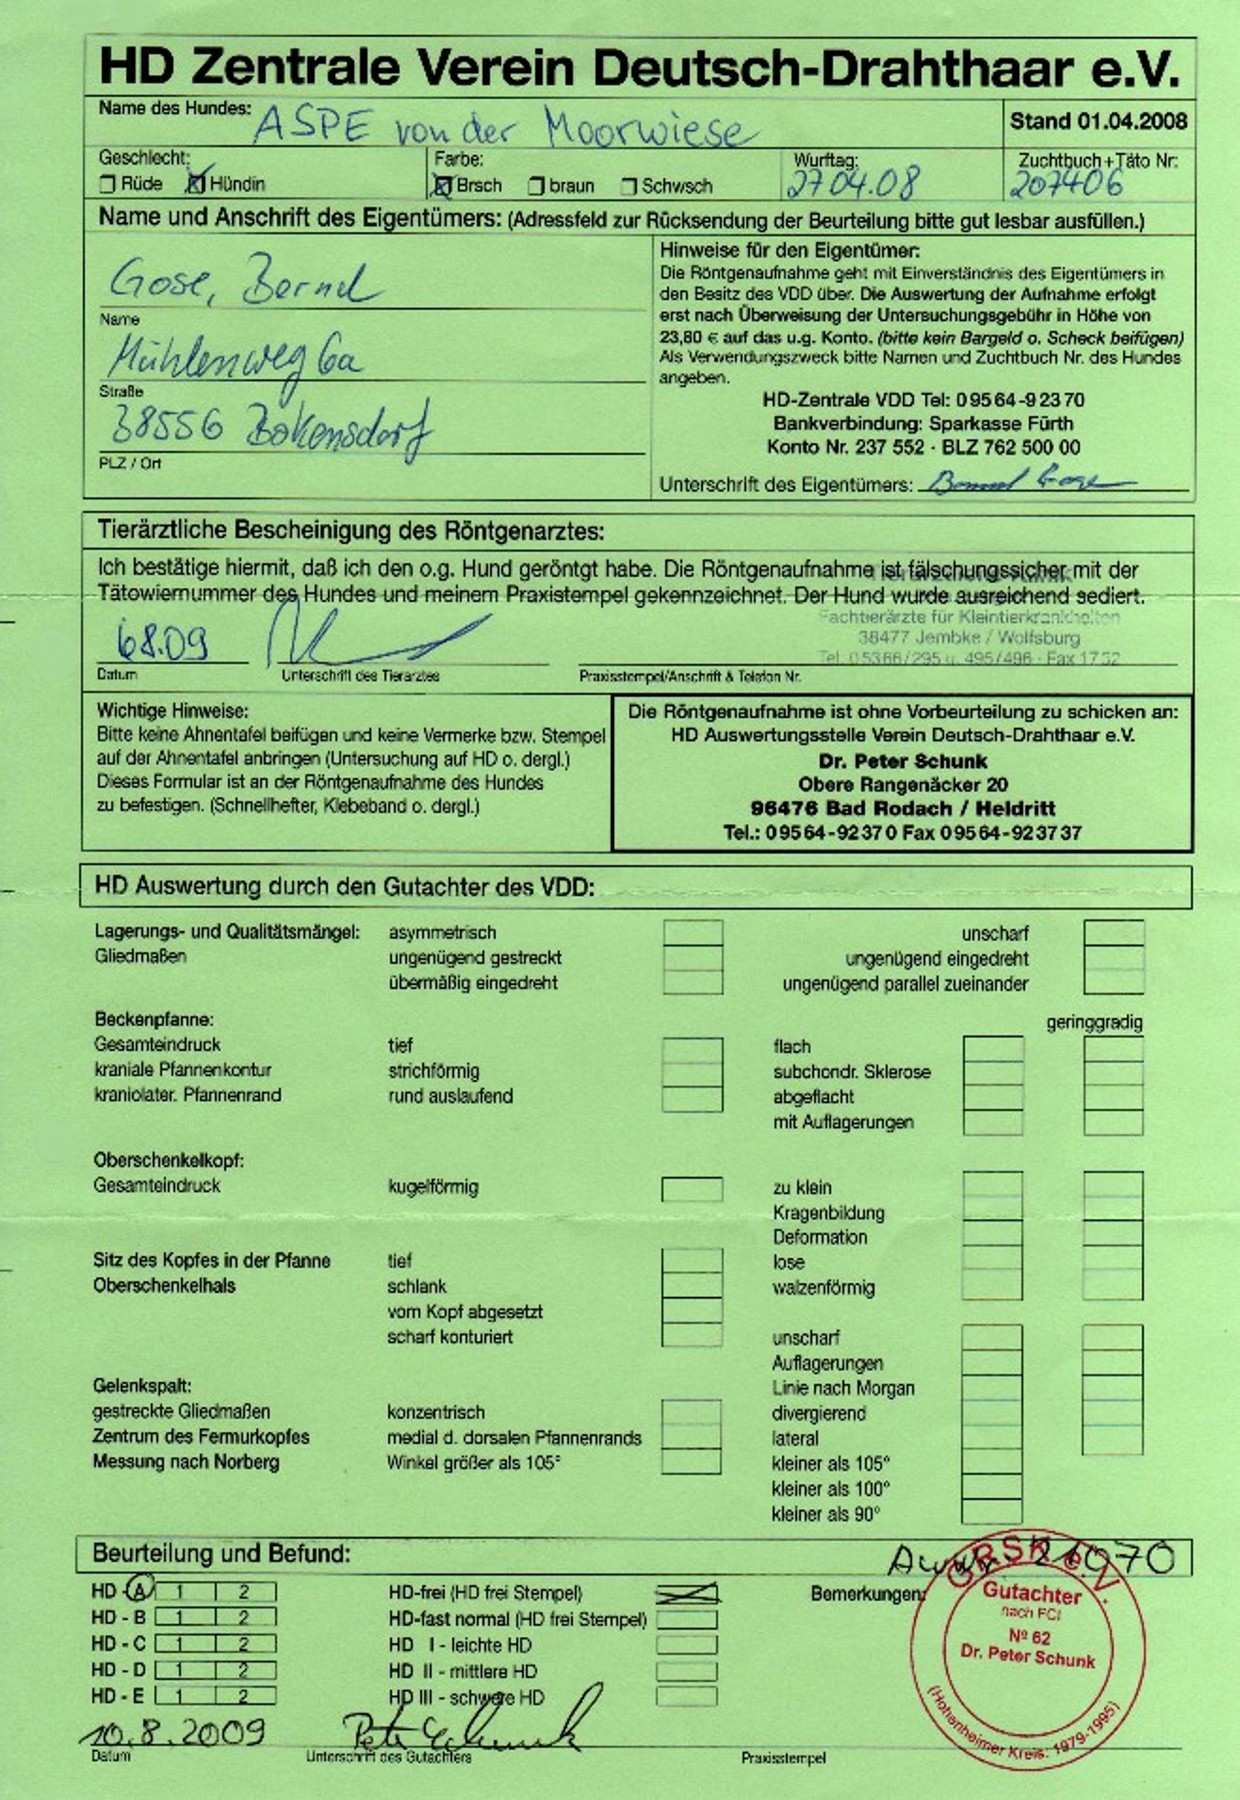 HD Zentrale Verein Deutsch-Drahthaar e.V.
Name des Hundes: ASPE von der Moorwiese
Stand 01.04.2008
Geschlecht: Farbe: Wurftag: Zuchtbuch+Täto Nr:
Rüde Hündin Brsch braun Schwsch 27.04.08 207406
Name und Anschrift des Eigentümers: (Adressfeld zur Rücksendung der Beurteilung bitte gut lesbar ausfüllen.)
Gose, Bernd
Name
Mühlenweg 6a
Straße
38556 Bokensdorf
PLZ / Ort
Hinweise für den Eigentümer:
Die Röntgenaufnahme geht mit Einverständnis des Eigentümers in
den Besitz des VDD über. Die Auswertung der Aufnahme erfolgt
erst nach Überweisung der Untersuchungsgebühr in Höhe von
23,80 € auf das u.g. Konto. (bitte kein Bargeld o. Scheck beifügen)
Als Verwendungszweck bitte Namen und Zuchtbuch Nr. des Hundes
angeben.
HD-Zentrale VDD Tel: 0 95 64 - 9 23 70
Bankverbindung: Sparkasse Fürth
Konto Nr. 237 552 · BLZ 762 500 00
Unterschrift des Eigentümers: Bernd Gose
Tierärztliche Bescheinigung des Röntgenarztes:
Ich bestätige hiermit, daß ich den o.g. Hund geröntgt habe. Die Röntgenaufnahme ist fälschungssicher mit der
Tätowiernummer des Hundes und meinem Praxistempel gekennzeichnet. Der Hund wurde ausreichend sediert.
Fachtierärzte für Kleintierkrankheiten
38477 Jembke / Wolfsburg
Tel. 05366/295 u. 495/496 · Fax 1752
6.8.09
Datum Unterschrift des Tierarztes Praxisstempel/Anschrift & Telefon Nr.
Wichtige Hinweise:
Bitte keine Ahnentafel beifügen und keine Vermerke bzw. Stempel
auf der Ahnentafel anbringen (Untersuchung auf HD o. dergl.)
Dieses Formular ist an der Röntgenaufnahme des Hundes
zu befestigen. (Schnellhefter, Klebeband o. dergl.)
Die Röntgenaufnahme ist ohne Vorbeurteilung zu schicken an:
HD Auswertungsstelle Verein Deutsch-Drahthaar e.V.
Dr. Peter Schunk
Obere Rangenäcker 20
96476 Bad Rodach / Heldritt
Tel.: 0 95 64 - 92 37 0 Fax 0 95 64 - 92 37 37
HD Auswertung durch den Gutachter des VDD:
Lagerungs- und Qualitätsmängel: asymmetrisch unscharf
Gliedmaßen ungenügend gestreckt ungenügend eingedreht
übermäßig eingedreht ungenügend parallel zueinander
Beckenpfanne: geringgradig
Gesamteindruck tief flach
kraniale Pfannenkontur strichförmig subchondr. Sklerose
kraniolater. Pfannenrand rund auslaufend abgeflacht
mit Auflagerungen
Oberschenkelkopf:
Gesamteindruck kugelförmig zu klein
Kragenbildung
Deformation
Sitz des Kopfes in der Pfanne tief lose
Oberschenkelhals schlank walzenförmig
vom Kopf abgesetzt
scharf konturiert unscharf
Auflagerungen
Gelenkspalt: Linie nach Morgan
gestreckte Gliedmaßen konzentrisch divergierend
Zentrum des Fermurkopfes medial d. dorsalen Pfannenrands lateral
Messung nach Norberg Winkel größer als 105° kleiner als 105°
kleiner als 100°
kleiner als 90°
Beurteilung und Befund:
HD - A 1 2 HD-frei (HD frei Stempel) Bemerkungen:
HD - B 1 2 HD-fast normal (HD frei Stempel)
HD - C 1 2 HD I - leichte HD
HD - D 1 2 HD II - mittlere HD
HD - E 1 2 HD III - schwere HD
GRSK e.V.
Gutachter
nach FCI
Nº 62
Dr. Peter Schunk
(Hohenheimer Kreis: 1979-1995)
10.8.2009 Peter Schunk
Datum Unterschrift des Gutachters Praxisstempel